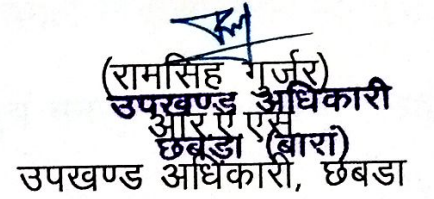 (रामसिंह गुर्जर)
उपखण्ड अधिकारी
आर ए एस
छबडा (बारां)
उपखण्ड अधिकारी, छबडा